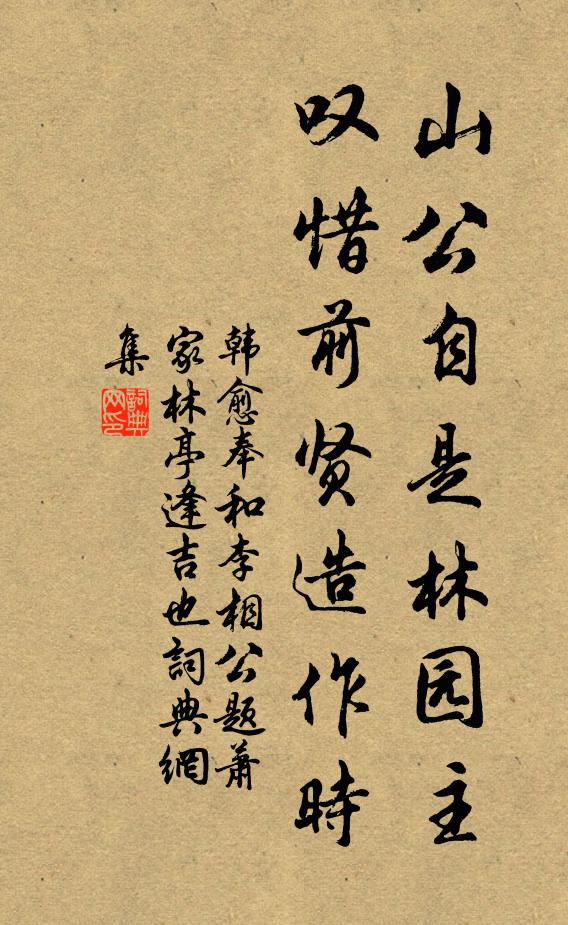 山公自是林园主
叹惜前贤造作時
韩愈奉和李相公题萧
家林亭逢吉也詞典網
集
詞典
网印